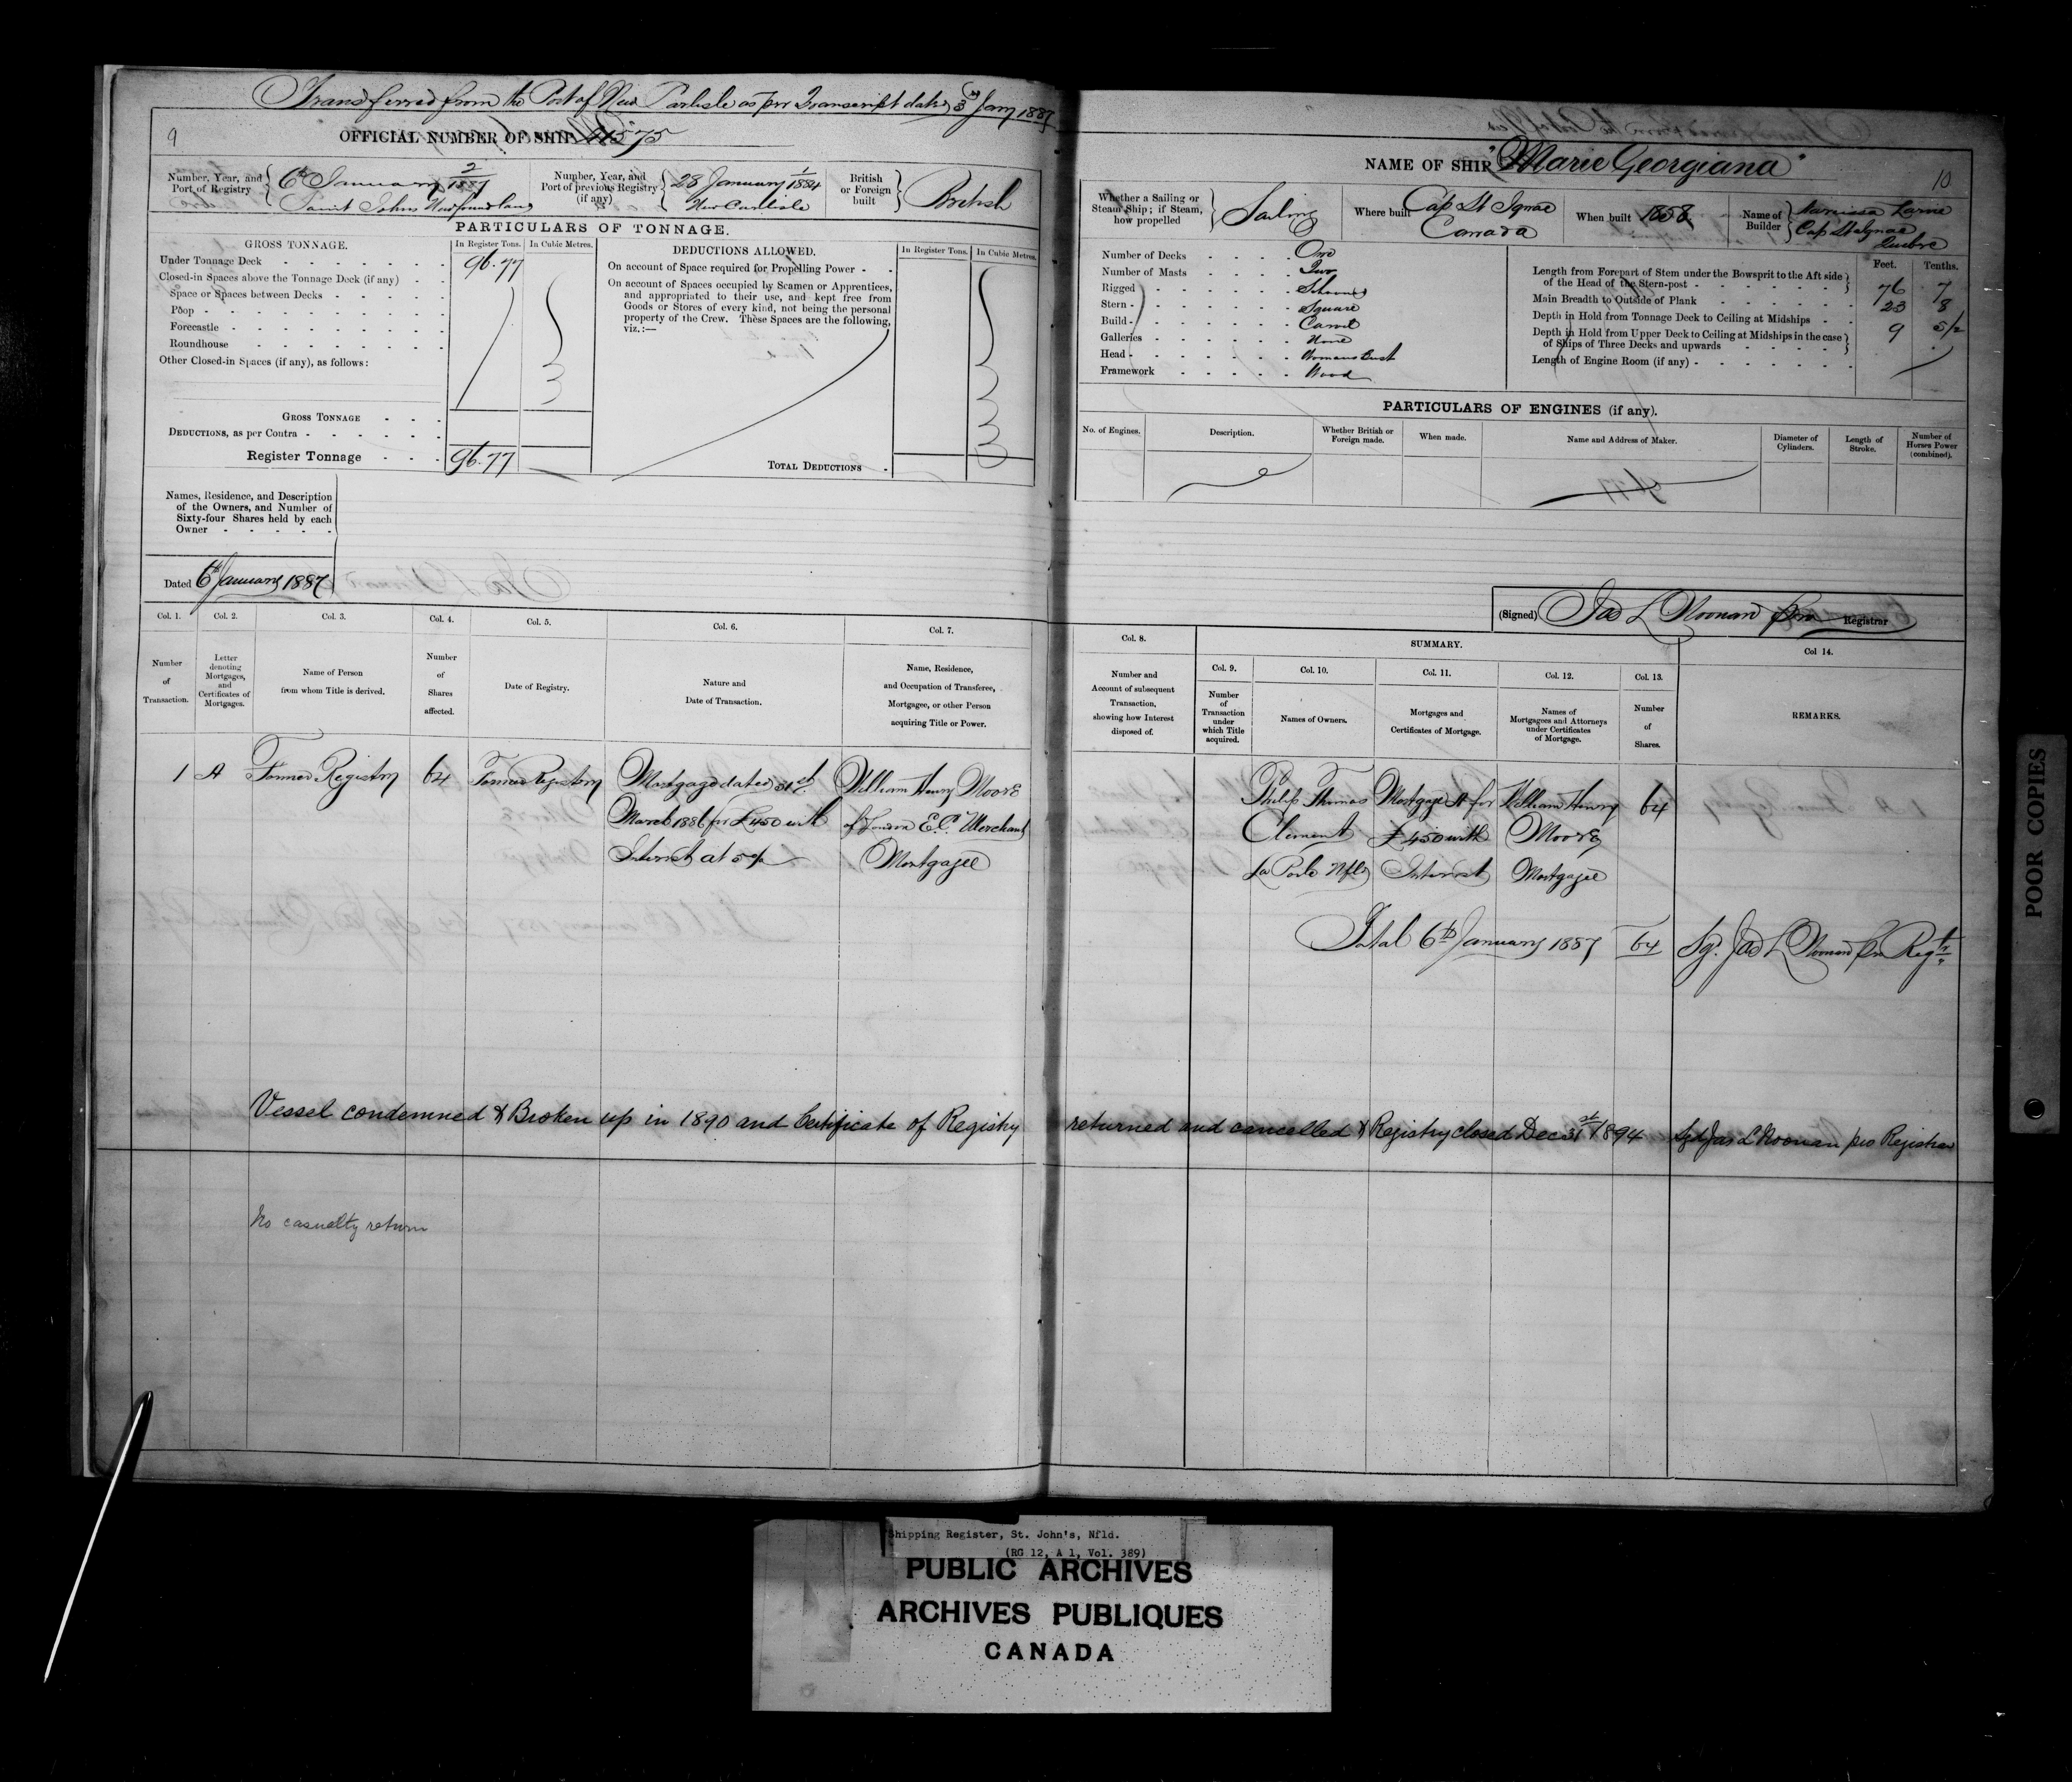 Transferred from the Port of New Carlisle as per Transcript dated 3rd Jany 1887
9
OFFICIAL NUMBER OF SHIP
Number, Year, and Port of Registry
6th January 2/1887
Saint Johns Newfoundland
Number, Year, and Port of previous Registry (if any)
28 January 1/1884
New Carlisle
British or Foreign built
British
PARTICULARS OF TONNAGE.
GROSS TONNAGE.
In Register Tons.
In Cubic Metres.
Under Tonnage Deck
96.77
Closed-in Spaces above the Tonnage Deck (if any)
Space or Spaces between Decks
Poop
Forecastle
Roundhouse
Other Closed-in Spaces (if any), as follows:
GROSS TONNAGE
DEDUCTIONS, as per Contra
Register Tonnage
96.77
DEDUCTIONS ALLOWED.
In Register Tons.
In Cubic Metres.
On account of Space required for Propelling Power
On account of Spaces occupied by Seamen or Apprentices,
and appropriated to their use, and kept free from
Goods or Stores of every kind, not being the personal
property of the Crew. These Spaces are the following,
viz.:—
TOTAL DEDUCTIONS
Names, Residence, and Description
of the Owners, and Number of
Sixty-four Shares held by each
Owner
Dated 6th January 1887
Col. 1.
Col. 2.
Col. 3.
Col. 4.
Col. 5.
Col. 6.
Col. 7.
Number of Transaction.
Letter denoting Mortgages, and Certificates of Mortgages.
Name of Person from whom Title is derived.
Number of Shares affected.
Date of Registry.
Nature and Date of Transaction.
Name, Residence, and Occupation of Transferee, Mortgagee, or other Person acquiring Title or Power.
1 A Former Registry 64 Former Registry
Mortgage dated 31st
March 1886 for £450 with
Interest at 5%
William Henry Moore
of London E.C. Merchant
Mortgagee
Vessel condemned & Broken up in 1890 and Certificate of Registry
No casualty return
NAME OF SHIP "Marie Georgiana"
10
Whether a Sailing or Steam Ship; if Steam, how propelled
Sailing
Where built
Cap St Ignace
Canada
When built
1858
Name of Builder
Cap St Ignace
Quebec
Number of Decks One
Number of Masts Two
Rigged Schooner
Stern Square
Build Carvel
Galleries None
Head Womans Bust
Framework Wood
Feet. Tenths.
Length from Forepart of Stem under the Bowsprit to the Aft side
of the Head of the Stern-post 76 7
Main Breadth to Outside of Plank 23 8
Depth in Hold from Tonnage Deck to Ceiling at Midships 9
Depth in Hold from Upper Deck to Ceiling at Midships in the case
of Ships of Three Decks and upwards
Length of Engine Room (if any)
PARTICULARS OF ENGINES (if any).
No. of Engines.
Description.
Whether British or Foreign made.
When made.
Name and Address of Maker.
Diameter of Cylinders.
Length of Stroke.
Number of Horses Power (combined).
(Signed) Jas L Noonan pro Registrar
Col. 8.
SUMMARY.
Col 14.
Col. 9.
Col. 10.
Col. 11.
Col. 12.
Col. 13.
Number and Account of subsequent Transaction, showing how Interest disposed of.
Number of Transaction under which Title acquired.
Names of Owners.
Mortgages and Certificates of Mortgage.
Names of Mortgagees and Attorneys under Certificates of Mortgage.
Number of Shares.
REMARKS.
Philip Thomas
Clement
La Poile Nfld
Mortgage A for
£450 with
Interest
William Henry
Moore
Mortgagee
64
Total 6th January 1887 64 Sgd. Jas L Noonan pro Regtr
returned and cancelled & Registry closed Dec 31st 1894 Sgd Jas L Noonan pro Registrar
POOR COPIES
Shipping Register, St. John's, Nfld.
(RG 12, A 1, Vol. 389)
PUBLIC ARCHIVES
ARCHIVES PUBLIQUES
CANADA